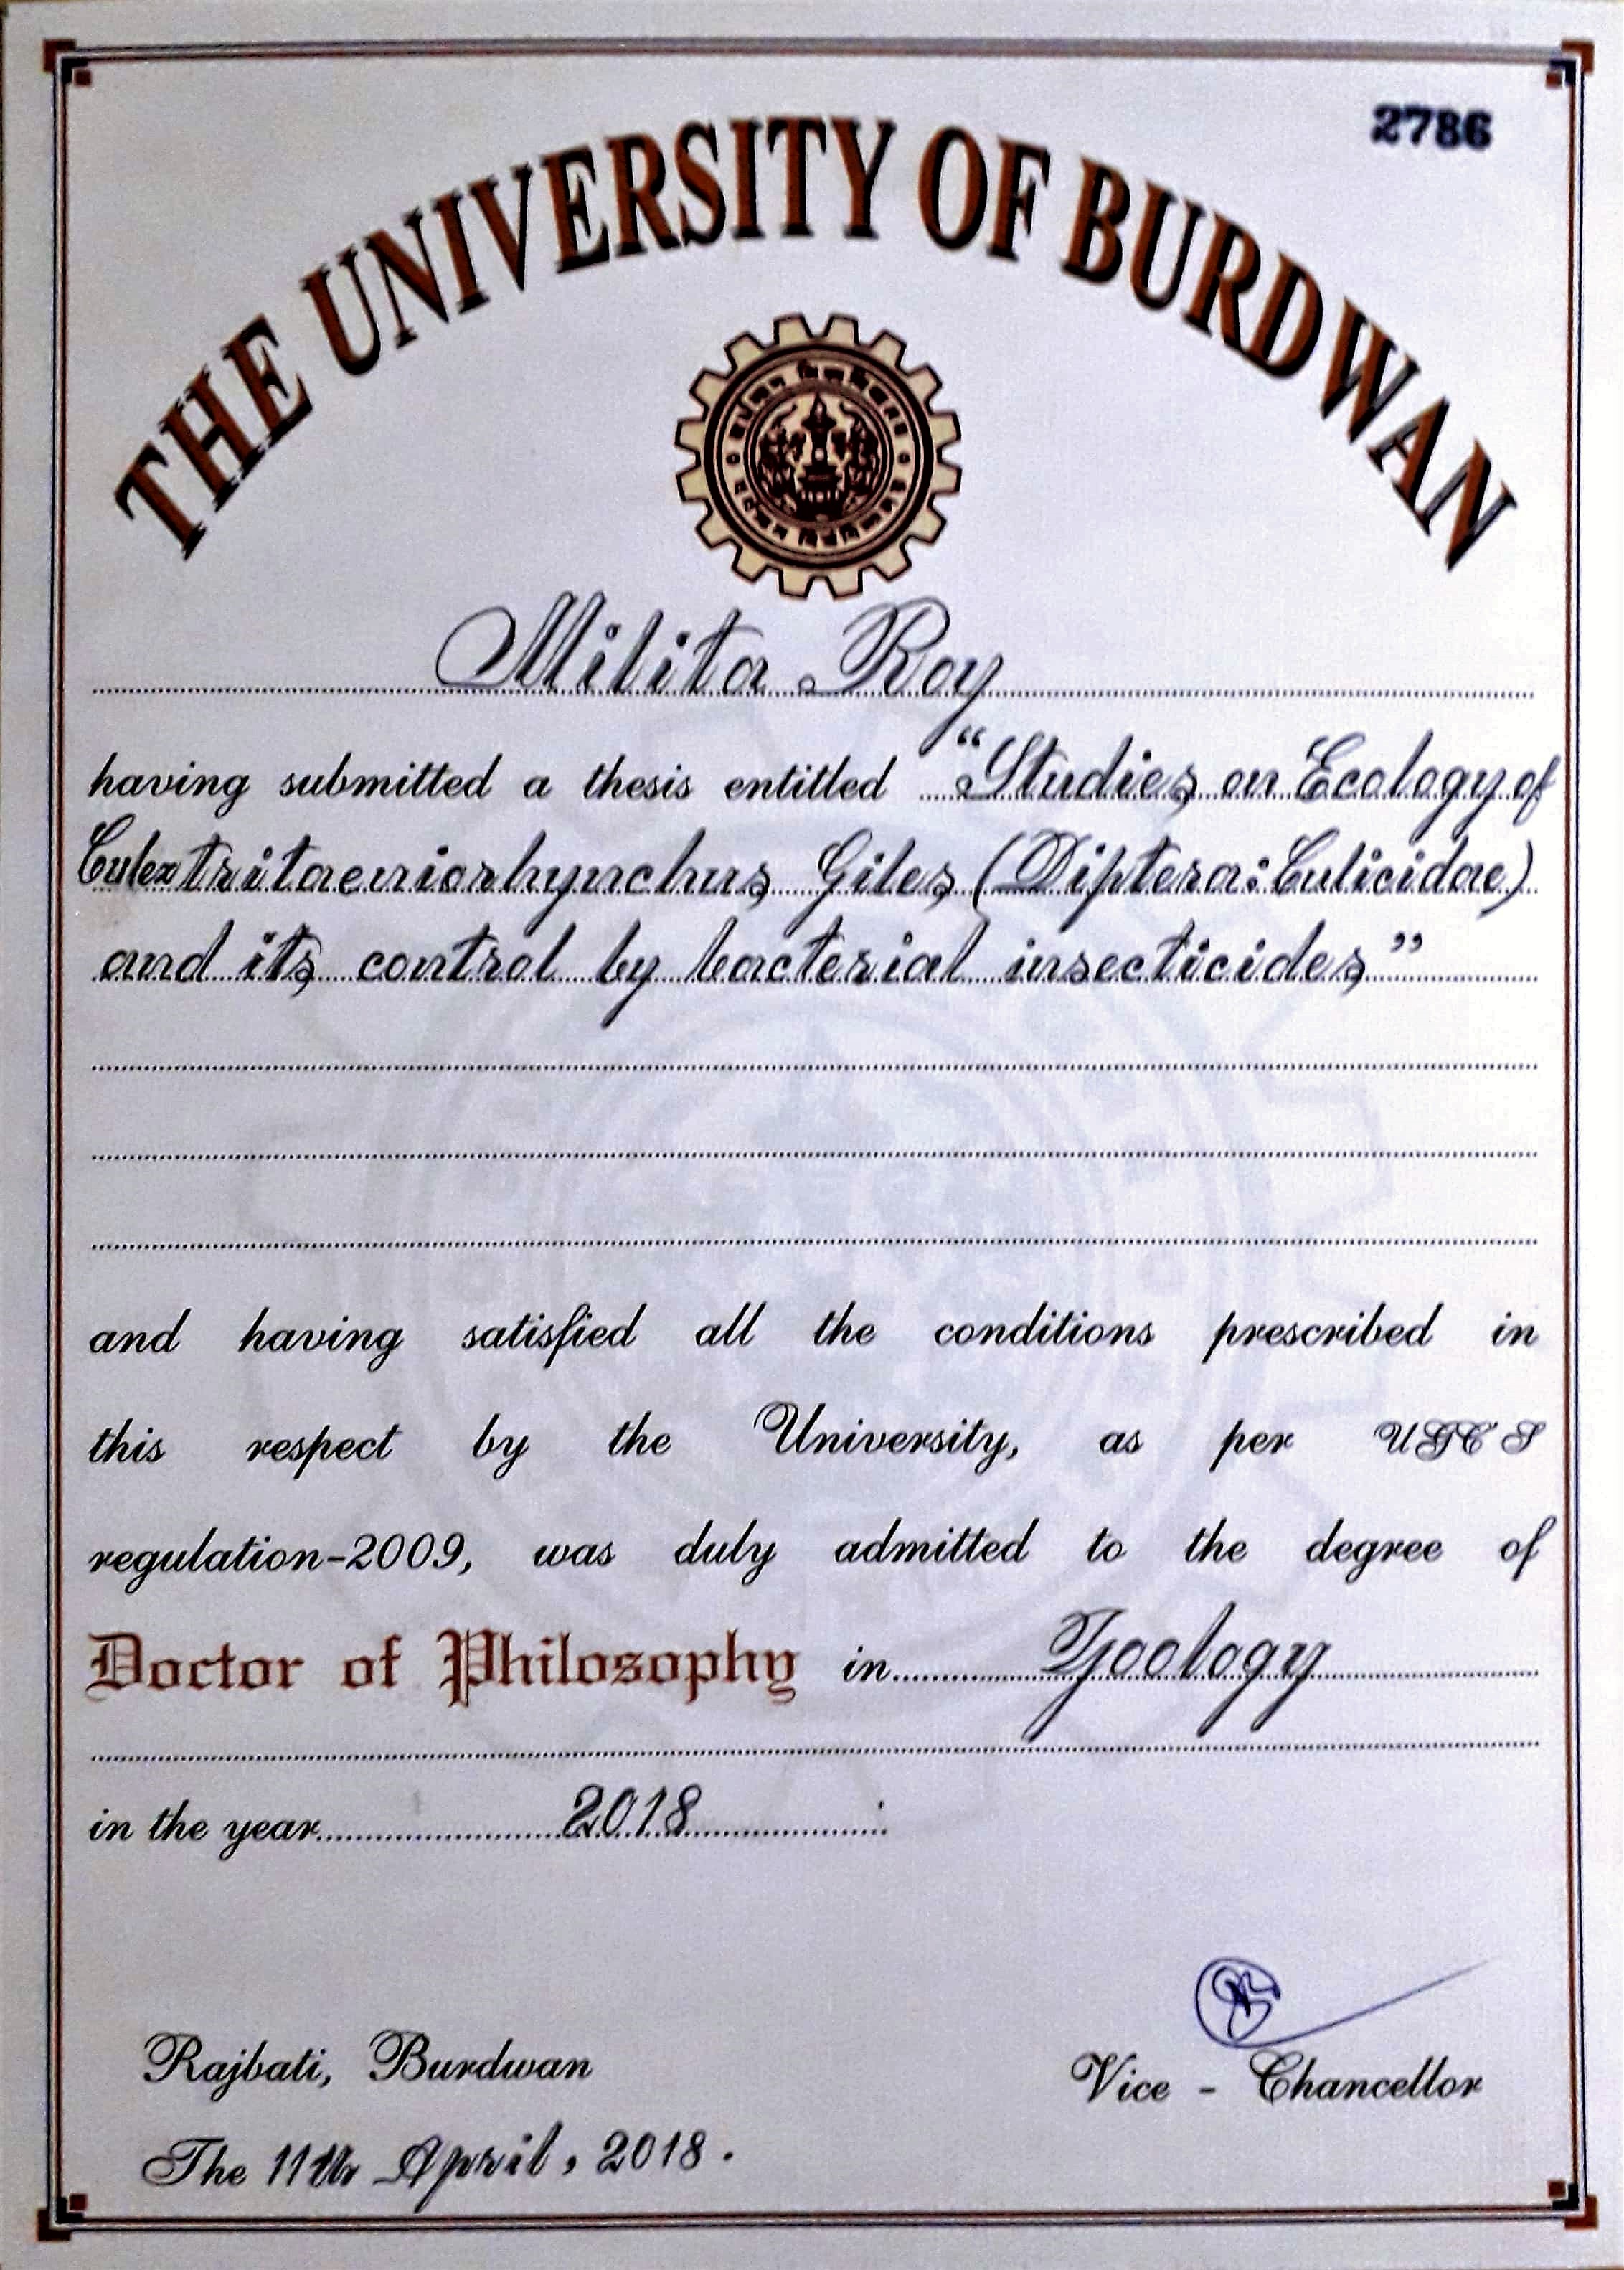 2786
THE UNIVERSITY OF BURDWAN
Milita Roy
having submitted a thesis entitled “Studies on Ecology of
Culex tritaeniorhynchus Giles (Diptera: Culicidae)
and its control by bacterial insecticides”
and having satisfied all the conditions prescribed in
this respect by the University, as per UGC S
regulation-2009, was duly admitted to the degree of
Doctor of Philosophy in Zoology
in the year 2018
Rajbati, Burdwan
Vice - Chancellor
The 11th April, 2018.